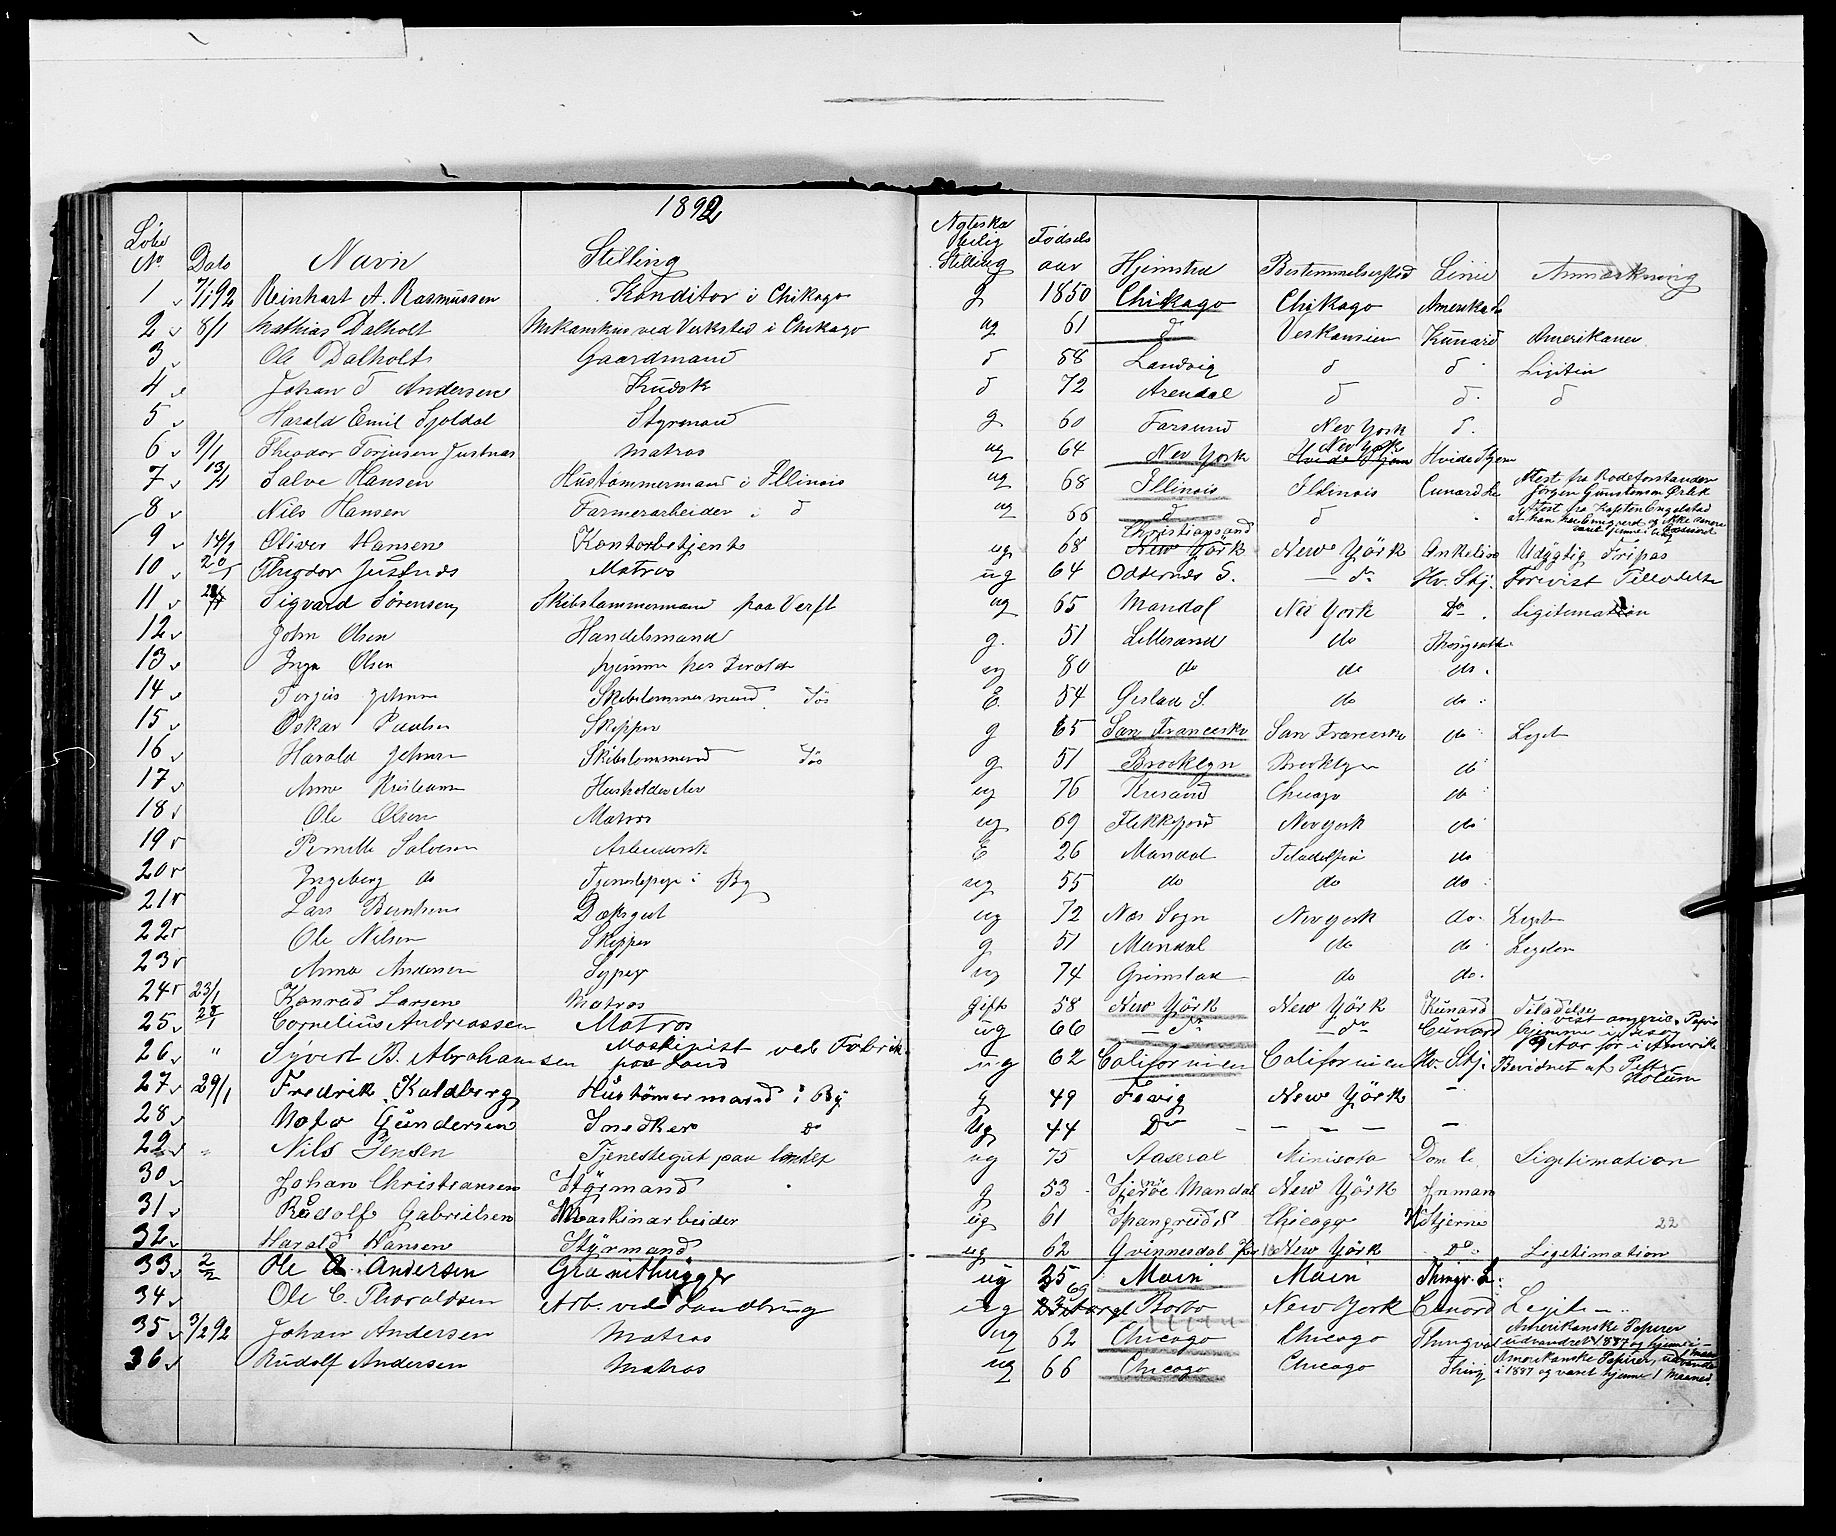 1892
Löbe No. Dato Navn Stilling Ægteskabelig Stilling Födselsaar Hjemsted Bestemmelsessted Linie Anmærkning
1 7/1 92 Reinhart A. Rasmussen Konditor i Chikago g 1850 Chikago Chikago Amerika L
2 8/1 Mathias Dalholt Mekanikus ved Verksted i Chikago ug 61 d Veskansien Kunard Amerikaner
3 Ole Dalholt Gaardmand d 58 Landvig d d Legitim
4 Johan d Andersen Kudsk d 72 Arendal d d d
5 Harald Emil Sjoldal Styrman g 60 Farsund New York d.
6 9/1 Theodor Torjusen Justnæs Matros ug 64 New York New York Hvide Stjern
7 13/1 Salve Hansen Hustömmermand i Illinois ug 68 Illinois Illinois Cunard Li Attest fra Rodeforstander Jörgen Gunstensen
8 Nils Hansen Farmerarbeider i d ug 66 d d Attest fra Kapten Engelstad
9 14/1 Oliver Hansen Kontorbetjent ug 68 Christiansand New York Ankelin Udygtig Fripas
10 20/1 Theodor Justnes Matros ug 64 Oddernes S. — do Hv. Stj. Forevist Tilladelse
11 Sigvard Sörensen Skibstömmermand paa Verft ug 65 Mandal New York Do Legitemation
12 John Olsen Handelsmand g. 51 Lillesand do Thingvalla
13 Inga Olsen hjemme hos Foreldr ug 80 do do do.
14 Torjus Johnsen Skibstömmermand Tös E. 54 S. do do
15 Oskar Paulsen Skipper g 65 San Francesko San Francesko do Legit
16 Harald Johnsen Skibstömmermand Tös g 51 Brooklyn Brooklyn do
17 Anna Kristiansen Husholderske ug 76 Krisand Chicago do
18 Ole Olsen Matros ug 69 Flekkefjord New york do
19 Pernille Salvesen Arbeiderske E 26 Mandal Feladelfia do
20 Ingeberg do Tjenestepige i By ug 55 do do do
21 Lars Berntsen Dæksgut ug 72 Næs Sogn New york do. Legit
22 Ole Nilsen Skipper g 51 Mandal do do
23 Anna Andersen Sypige ug 74 Grimstad do do.
24 23/1 Konrad Larsen Matros gift 58 New York New York Kunard Teladelse
25 28/1 Cornelius Andreassen Matros ug 66 — do — do Cunard vist amerik. Papir hjemme
26 " Syvert B. Abrahamsen Maskinist ved Fabrik paa Land ug 62 Californien Californien Hv. Stj. Bevidnet af Petter Holum
27 29/1 Fredrik Kaldberg Hustömermand i By g 49 Fevig New York —
28 Gundersen Snedker do Ug 44 Do — — — — —
29 " Nils Jensen Tjenestegut paa landet ug 75 Aaseral Minisota Dom L Legitimation
30 Johan Christiansen Styrmand g 53 Mandal New York Inman
31 Rudolf Gabrielsen Maskinarbeider ug 61 Spangreid S Chicago H Stjerne 22
32 Harald Hansen Styrmand ug 62 Qvinnesdal New York Do Legetimation
33 2/2 Ole A. Andersen Granithugger ug 25 Main Main Thingv. L:
34 Ole C. Thoraldsen Arb. ved Landbrug ug 69 Borbo New York Cunard Legitim
35 3/2 92 Johan Andersen Matros ug 62 Chicago Chicago Thingval Amerikanske Papirer udvandret 1887 og hjemme i 1 Maan
36 Rudolf Andersen Matros ug 66 Chicago Chicago Thing Amerikanske Papirer, udvandr i 1887 og været hjemme 1 Maaned.